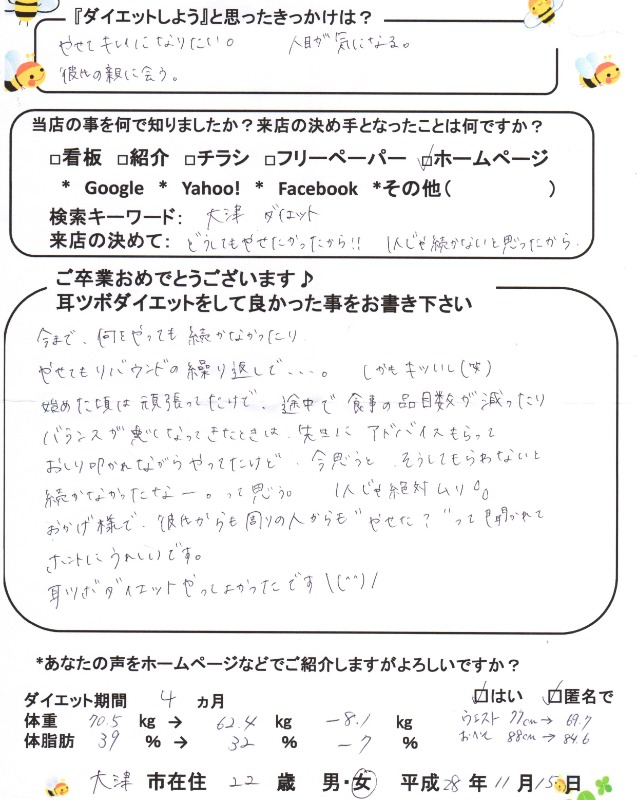 『ダイエットしよう』と思ったきっかけは?
やせてキレイになりたい。 人目が気になる。
彼氏の親に会う。
当店の事を何で知りましたか?来店の決め手となったことは何ですか?
□看板 □紹介 □チラシ □フリーペーパー ☑ホームページ
* Google * Yahoo! * Facebook *その他( )
検索キーワード: 大津 ダイエット
来店の決めて: どうしてもやせたかったから!! 1人じゃ続かないと思ったから
ご卒業おめでとうございます♪
耳ツボダイエットをして良かった事をお書き下さい
今まで、何をやっても続かなかったり
やせてもリバウンドの繰り返しで、、、。 しかもキツいし(笑)
始めた頃は頑張ってたけど、途中で食事の品目数が減ったり
バランスが悪くなってきたときは、先生にアドバイスもらって
おしり叩かれながらやってたけど、今思うと、そうしてもらわないと
続かなかったなー。って思う。 1人じゃ絶対ムリ。
おかげ様で、彼氏からも周りの人からも"やせた?"って聞かれて
ホントにうれしいです。
耳ツボダイエットやってよかったです\(^^)/
*あなたの声をホームページなどでご紹介しますがよろしいですか?
☑はい ☑匿名で
ダイエット期間 4 ヵ月
体重 70.5 kg → 62.4 kg -8.1 kg
ウエスト 77cm → 69.7
体脂肪 39 % → 32 % -7 %
おへそ 88cm → 84.6
大津 市在住 22 歳 男・女 平成28年11月15日